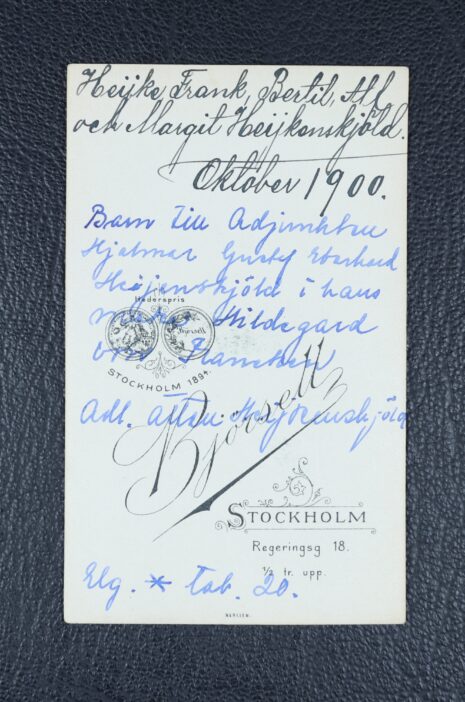 Heijke, Frank, Bertil, Alf
och Margit Heijkenskjöld.
Oktober 1900.
Barn till Adjunkten
Hjalmar Gustaf Eberhard
Heijkenskjöld i hans
Hederspris
Hildegard
von
STOCKHOLM 1897
Adl. ätten Heijkenskjöld
Björsell
STOCKHOLM
Regeringsg 18.
½ tr. upp.
Elg. * tab. 20.